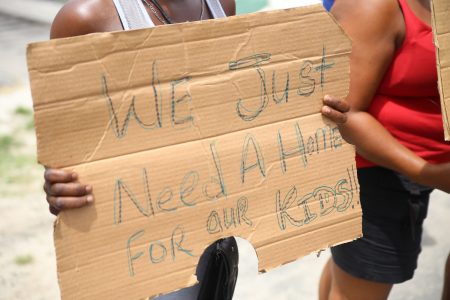 We Just
Need A Home
For our Kids!!